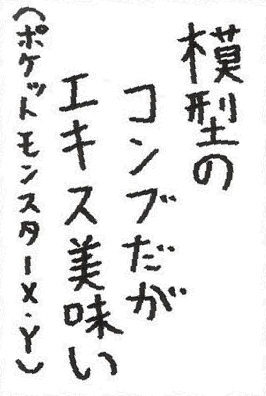 模型の
コンブだが
エキス美味い
（ポケットモンスターX・Y）